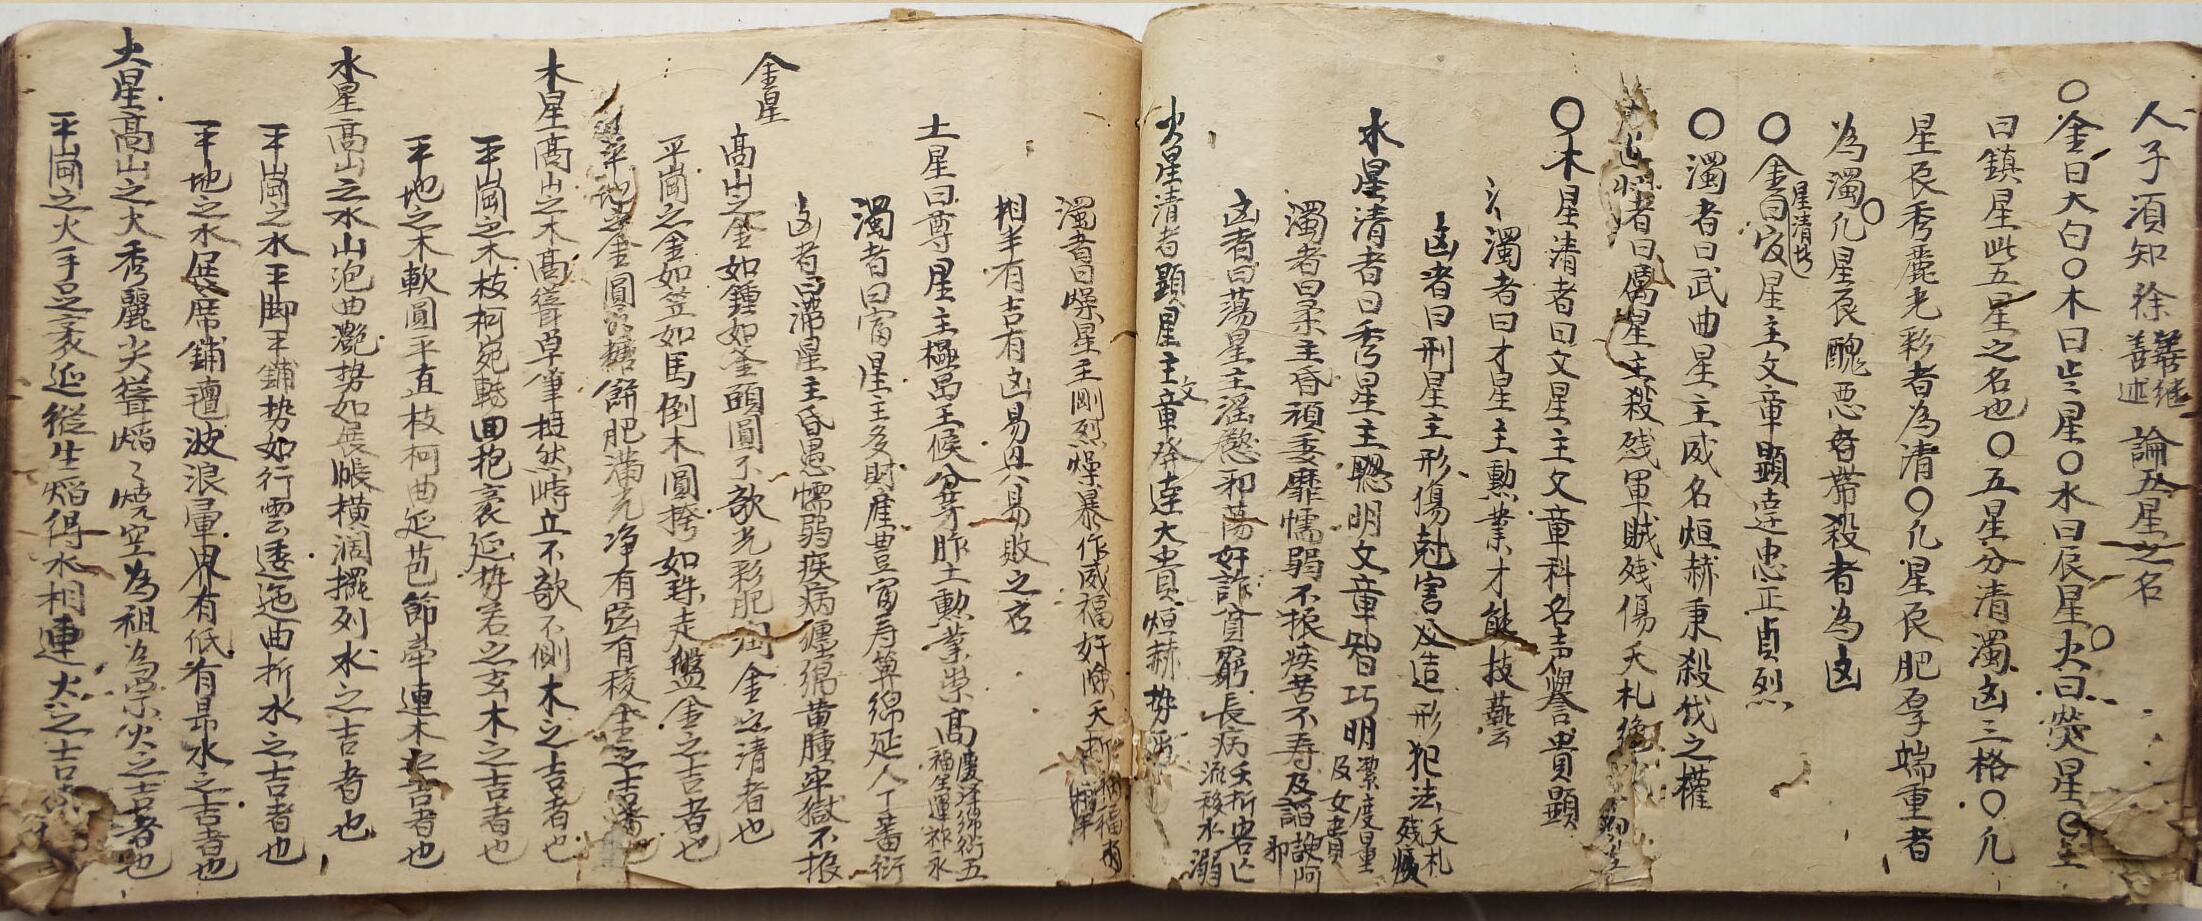 人子須知徐善繼善述論五星之名
〇金曰太白〇木曰歲星〇水曰辰星〇火曰熒星〇土
曰鎮星此五星之名也〇五星分清濁凶三格〇凡
星辰秀麗光彩者為清〇凡星辰肥厚端重者
為濁〇凡星辰醜惡者帶殺者為凶
〇金星清者曰官星主文章顯達忠正貞烈
〇濁者曰武曲星主威名烜赫秉殺伐之權
者曰厲星主殺殘軍賊殘傷夭札絕
〇木星清者曰文星主文章科名声譽貴顯
濁者曰才星主勳業才能技藝
凶者曰刑星主形傷尅害及造形犯法夭札殘癀
水星清者曰秀星主聰明文章智巧明潔度量及女貴
濁者曰柔主昏頑委靡懦弱不振疾苦不寿及謟諛阿邪
凶者曰蕩星主滛慾邪蕩奸詐貧窮長病夭折客亡流移水溺
火星清者顯星主文章發達大貴烜赫势
濁者曰燥星主剛烈燥暴作威福奸險夭折禍福
相半有吉有凶易興易敗之应
土星曰尊星主極品王候分茅胙土勳業崇髙慶泽綿衍五福全運祚永
濁者曰富星主多財産豊富寿筭綿延人丁蕃衍
凶者曰滯星主昏愚懦弱疾病纒綿黄腫牢獄不振
金星
髙山之金如鍾如釜頭圓不欹光彩肥潤金之清者也
平崗之金如笠如馬倒木圓拷如珠走盤金之吉者也
平地之金圓如糖餅肥滿光净有弦有稜金之吉者也
木星髙山之木髙聳卓筆挺然峙立不欹不側木之吉者也
平崗之木枝柯宛転回抱袤延势若之玄木之吉者也
平地之木軟圓平直枝柯曲延苞節牽連木之吉者也
水星髙山之水山泡曲灔势如展帳横濶擺列水之吉者也
平崗之水平脚平鋪势如行雲逶迤曲折水之吉者也
平地之水展席鋪氊波浪暈界有低有昂水之吉者也
火星髙山之火秀麗尖聳熖々燒空為祖為宗火之吉者也
平崗之火手足之袤延縱生熖得水相連火之吉